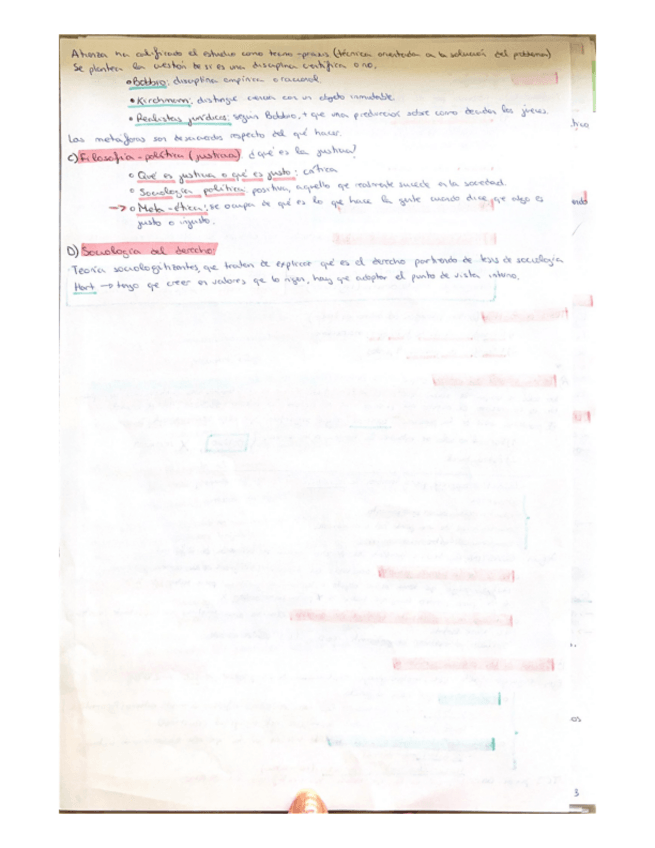 Atienza ha calificado el estudio como tecno-praxis (técnica orientada a la solución del problema)
Se plantea la cuestión de si es una disciplina científica o no.
• Bobbio: disciplina empírica o racional.
• Kirchmann: distingue ciencia con un objeto inmutable.
• Realistas jurídicos: según Bobbio, + que una predicción sobre como deciden los jueces.
Las metáforas son respecto del qué hacer.
C) Filosofía-política (justicia) ¿qué es la justicia?
o Qué es justicia o qué es justo: crítica
o Sociología política: positiva, aquello que realmente sucede en la sociedad.
→ o Meta-ética: se ocupa de qué es lo que hace la gente cuando dice que algo es
justo o injusto.
D) Sociología del derecho:
Teoría sociologizantes, que tratan de explicar qué es el derecho partiendo de tesis de sociología
Hart → tengo que creer en valores que lo rigen, hay que adoptar el punto de vista interno.
3